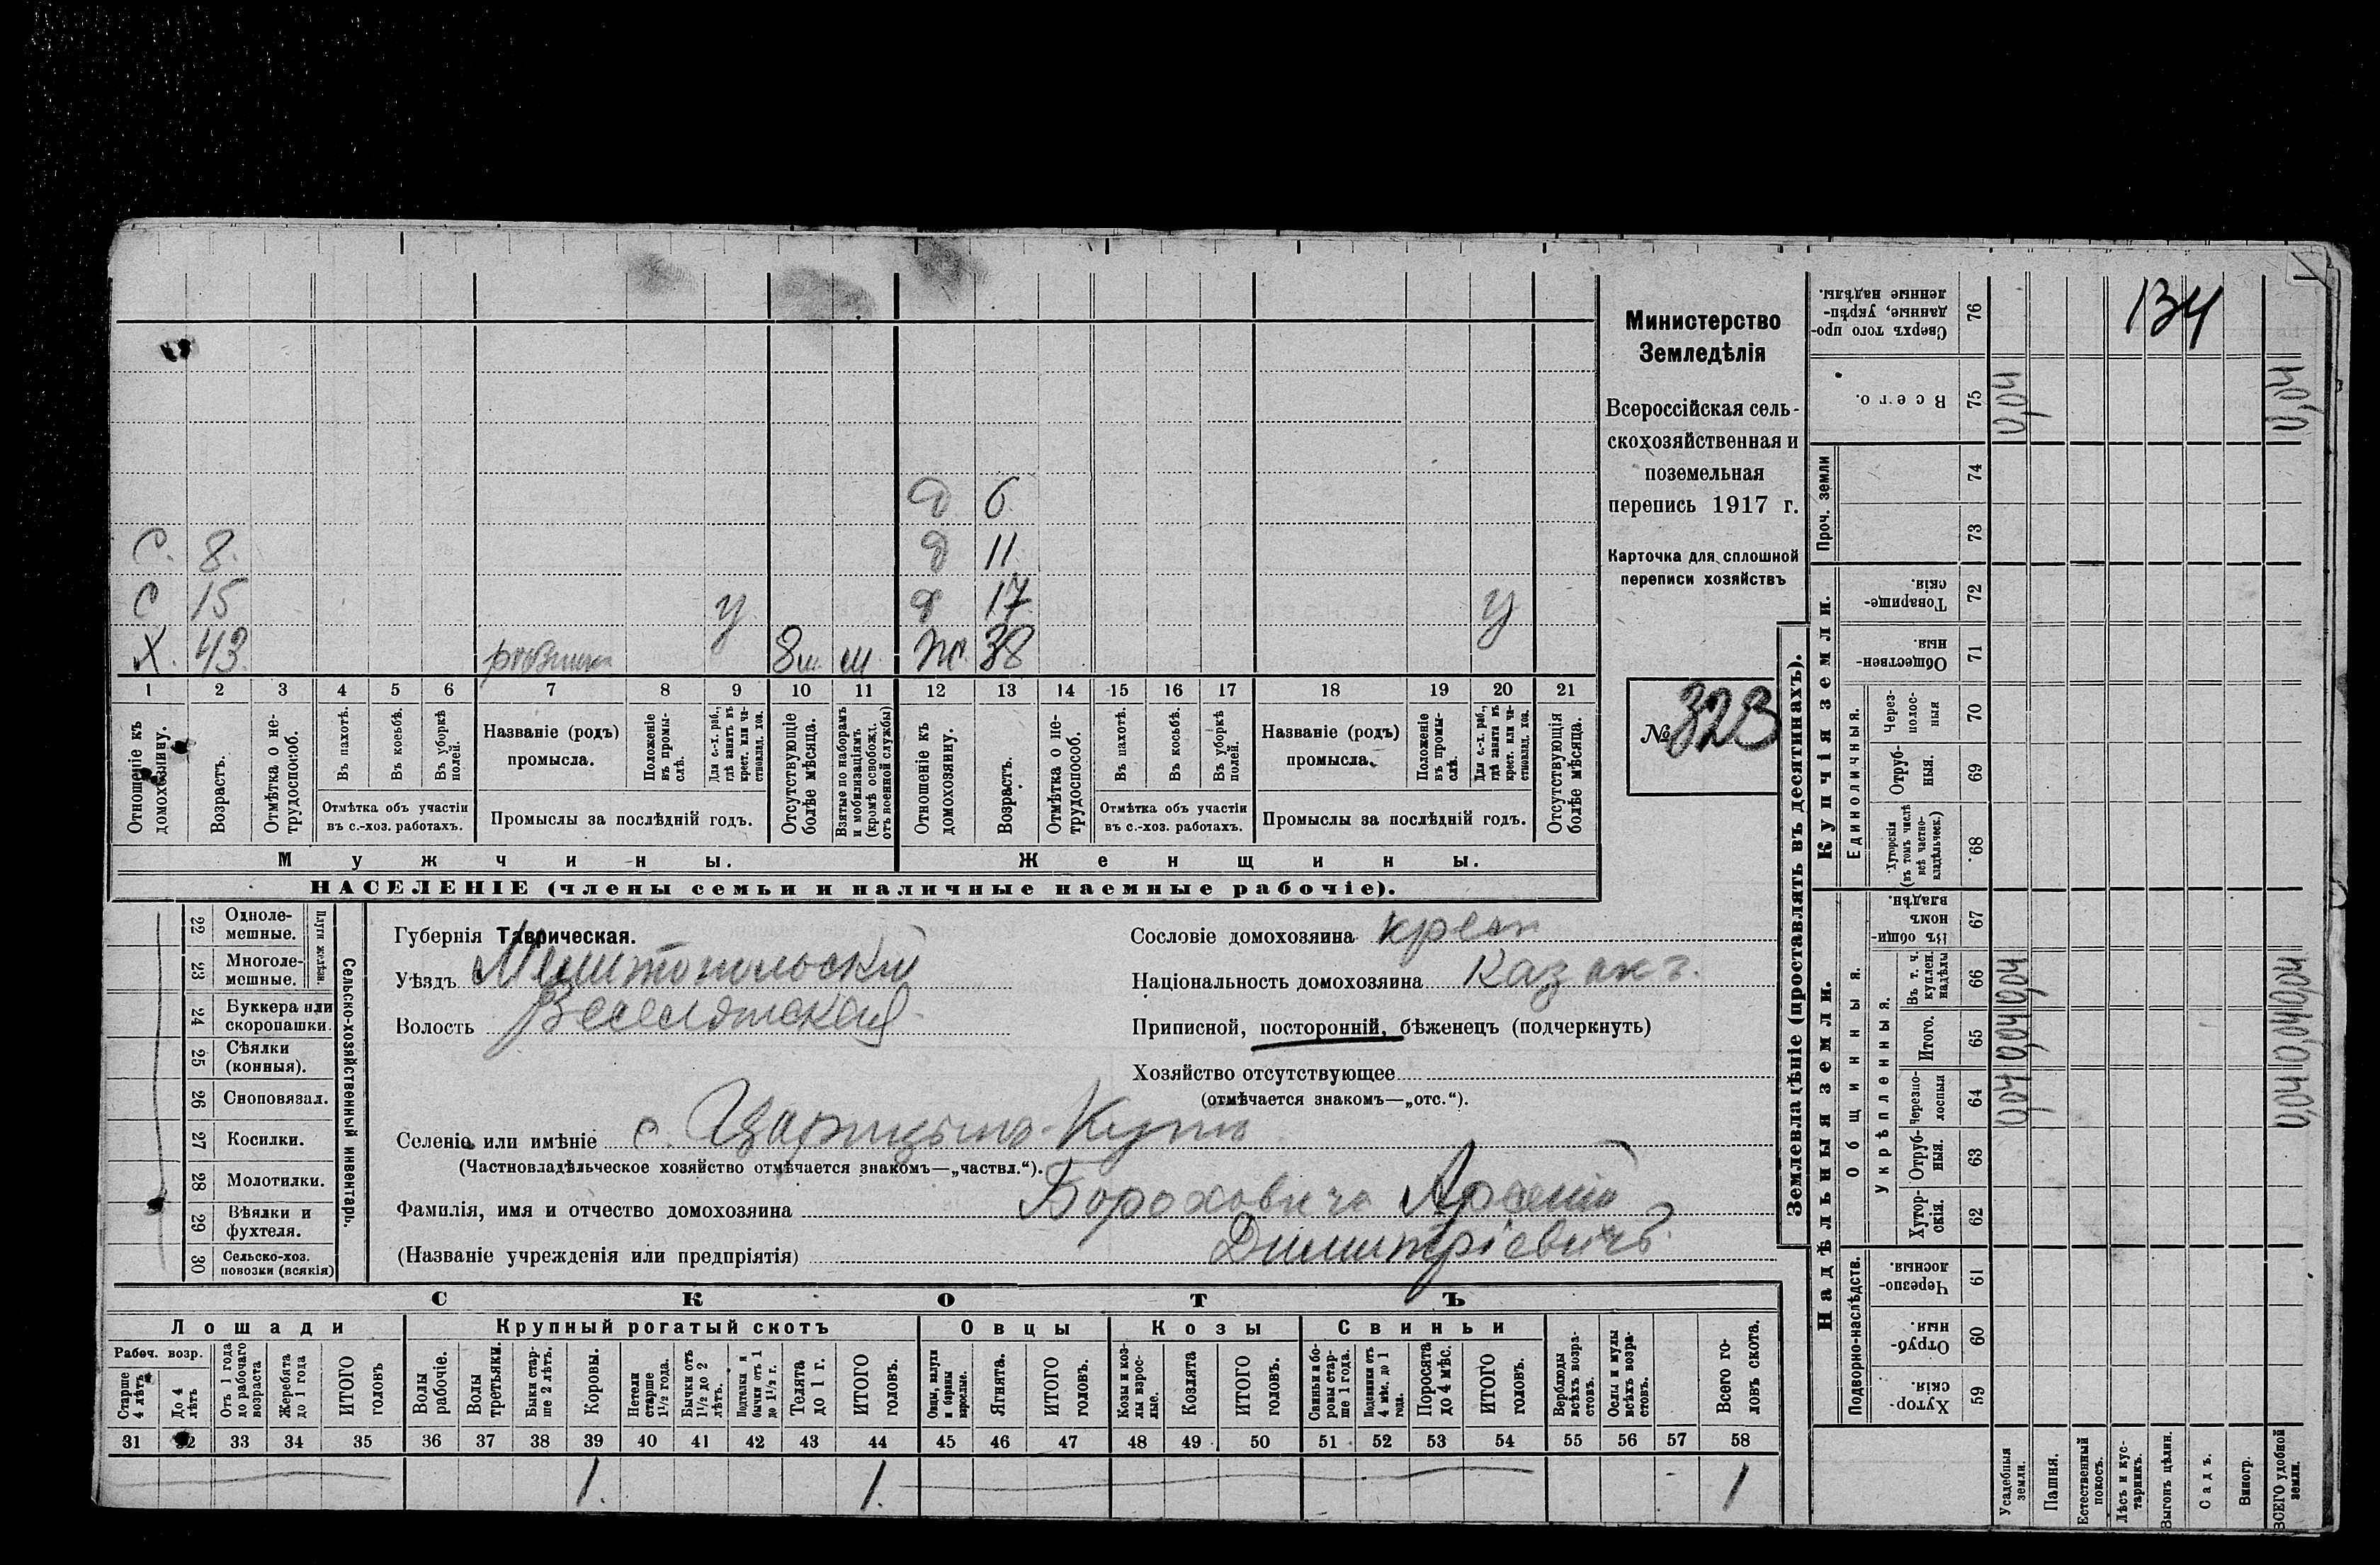 134
Министерство
Земледѣлія
Всероссійская сель-
скохозяйственная и
поземельная
перепись 1917 г.
Карточка для сплошной
переписи хозяйствъ
№ 323
д 6
С. 8. д 11
С 15 у д 17 у
Х. 43. 8 м. м Ж. 38
1 2 3 4 5 6 7 8 9 10 11 12 13 14 15 16 17 18 19 20 21
Отношеніе къ домохозяину.
Возрастъ.
Отмѣтка о нетрудоспособ.
Въ пахотѣ.
Въ косьбѣ.
Въ уборкѣ полей.
Отмѣтка объ участіи
въ с.-хоз. работахъ.
Названіе (родъ)
промысла.
Положеніе въ промыслѣ.
Для с.-х. раб., гдѣ занятъ въ крест. или частновлад. хоз.
Промыслы за послѣдній годъ.
Отсутствующіе болѣе мѣсяца.
Взятые по наборамъ и мобилизаціямъ (кромѣ освобожд. отъ военной службы)
Отношеніе къ домохозяину.
Возрастъ.
Отмѣтка о нетрудоспособ.
Въ пахотѣ.
Въ косьбѣ.
Въ уборкѣ полей.
Отмѣтка объ участіи
въ с.-хоз. работахъ.
Названіе (родъ)
промысла.
Положеніе въ промыслѣ.
Для с.-х. раб., гдѣ занята въ крест. или частновлад. хоз.
Промыслы за послѣдній годъ.
Отсутствующія болѣе мѣсяца.
Мужчины. Женщины.
НАСЕЛЕНІЕ (члены семьи и наличные наемные рабочіе).
Сельско-хозяйственный инвентарь.
Плуги желѣзн.
22 Однолемешные.
23 Многолемешные.
24 Буккера или скоропашки.
25 Сѣялки (конныя).
26 Сноповязал.
27 Косилки.
28 Молотилки.
29 Вѣялки и фухтеля.
30 Сельско-хоз. повозки (всякія)
Губернія Таврическая.
Уѣздъ Мелитопольскій
Волость Веселовская
Сословіе домохозяина крест
Національность домохозяина Казакъ.
Приписной, посторонній, бѣженецъ (подчеркнуть)
Хозяйство отсутствующее
(отмѣчается знакомъ—„отс.“).
Селеніе или имѣніе с. Царицыно-Кутъ
(Частновладѣльческое хозяйство отмѣчается знакомъ—„частвл.“).
Фамилія, имя и отчество домохозяина Бороховичъ Арсеній
(Названіе учрежденія или предпріятія) Димитріевичъ.
СКОТЪ
Лошади Крупный рогатый скотъ Овцы Козы Свиньи
Рабоч. возр.
Старше 4 лѣтъ
До 4 лѣтъ
Отъ 1 года до рабочаго возраста
Жеребята до 1 года
ИТОГО головъ
Волы рабочіе.
Волы третьяки.
Быки старше 2 лѣтъ.
Коровы.
Нетели старше 1½ года.
Бычки отъ 1½ до 2 лѣтъ.
Подтелки и бычки отъ 1 до 1½ г.
Телята до 1 г.
ИТОГО головъ.
Овцы, валухи и бараны взрослые.
Ягнята.
ИТОГО головъ.
Козы и козлы взрослые.
Козлята
ИТОГО головъ.
Свиньи и боровы старше 1 года.
Подсвинки отъ 4 мѣс. до 1 года.
Поросята до 4 мѣс.
ИТОГО головъ.
Верблюды всѣхъ возрастовъ.
Ослы и мулы всѣхъ возрастовъ.
Всего головъ скота.
31 32 33 34 35 36 37 38 39 40 41 42 43 44 45 46 47 48 49 50 51 52 53 54 55 56 57 58
1. 1. 1
Землевладѣніе (проставлять въ десятинахъ).
Надѣльныя земли. Купчія земли. Проч. земли
Подворно-наслѣдств.
Общинныя.
Укрѣпленныя.
Единоличныя.
59 Хуторскія
60 Отрубныя.
61 Черезполосныя
62 Хуторскія.
63 Отрубныя.
64 Черезполосныя
65 Итого.
66 Въ т. ч. куплен. надѣлы
67 Въ общинномъ владѣн.
68 Хуторскія (въ томъ числѣ всѣ частновладѣльческ.)
69 Отрубныя.
70 Черезполосныя
71 Общественныя
72 Товарищескія.
73
74
75 Всего.
76 Сверхъ того проданные, укрѣпленные надѣлы.
Усадебныя земли. 0,04 0,04 0,04 0,04
Пашня.
Естественный покосъ.
Лѣсъ и кустарникъ.
Выгонъ цѣлин.
Садъ.
Виногр.
ВСЕГО удобной земли. 0,04 0,04 0,04 0,04